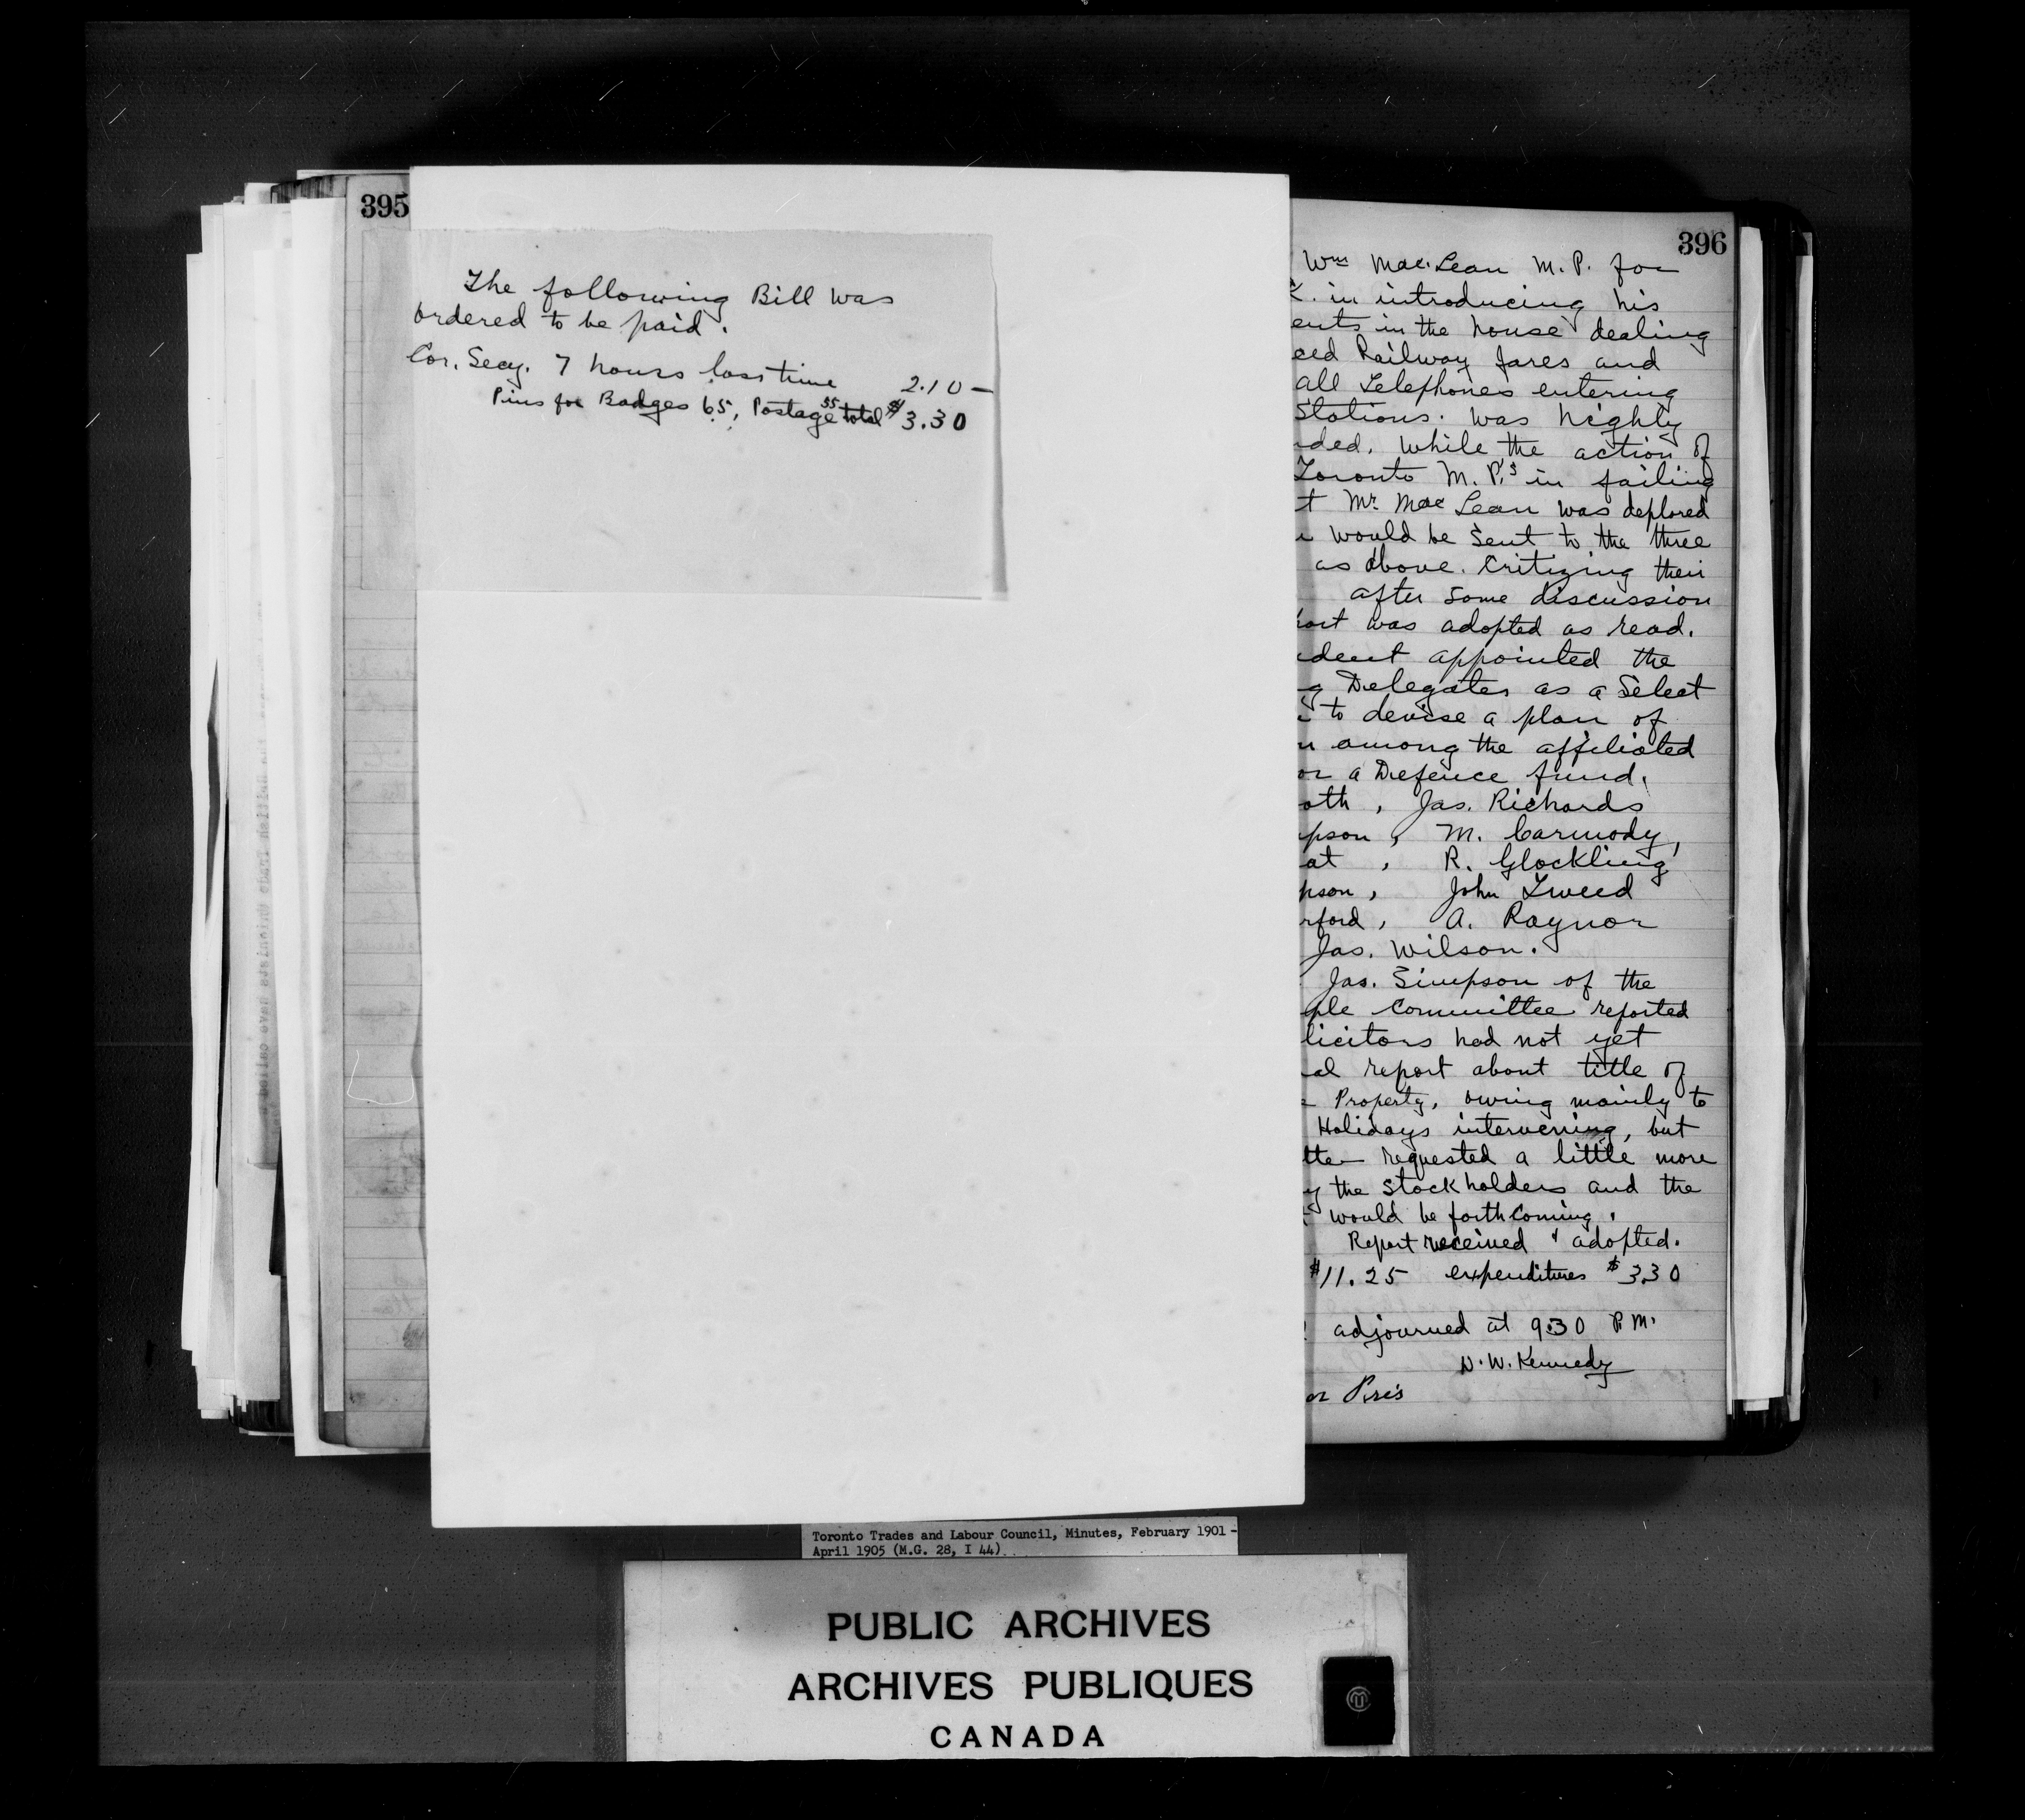 395
The following Bill was
ordered to be paid.
Cor. Secy. 7 hours loss time 2.10 —
Pins for Badges 65, Postage 55 total $3.30
396
Wm Mac. Lean M. P. for
in introducing his
ents in the house dealing
ced Railway fares and
all Telephones entering
Stations. was highly
ded. while the action of
Toronto M. P.'s in failing
t Mr Mac Lean was deplored
would be sent to the three
as above. Critizing their
after some discussion
ort was adopted as read.
dent appointed the
g Delegates as a Select
to devise a plan of
n among the affiliated
or a Defence fund.
oth, Jas. Richards
pson, M. Carmody,
at, R. Glockling
pson, John Tweed
rford, A. Raynor
Jas. Wilson.
Jas. Simpson of the
ple Committee reported
licitors had not yet
al report about title of
Property, owing mainly to
Holidays intervening, but
tte requested a little more
y the Stockholders and the
would be forthcoming.
Report received & adopted.
$11.25 expenditures $3.30
adjourned at 9.30 P.M.
D. W. Kennedy
or Pres
Toronto Trades and Labour Council, Minutes, February 1901 -
April 1905 (M.G. 28, I 44)
PUBLIC ARCHIVES
ARCHIVES PUBLIQUES
CANADA